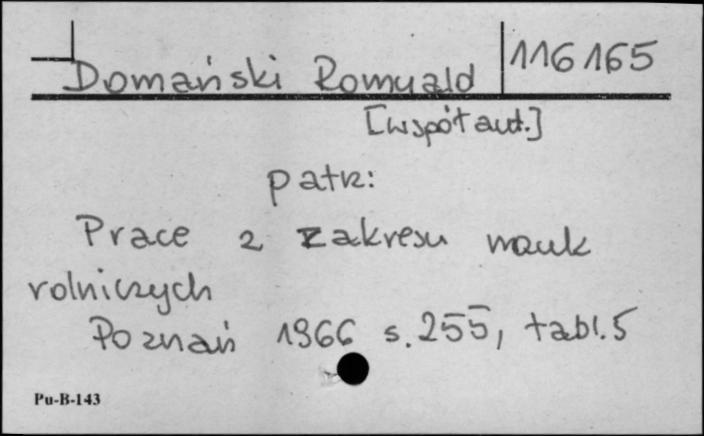 Domański Romuald 116165
[współaut.]
patrz:
Prace z zakresu nauk
rolniczych
Poznań 1966 s. 255, tabl. 5
Pu-B-143